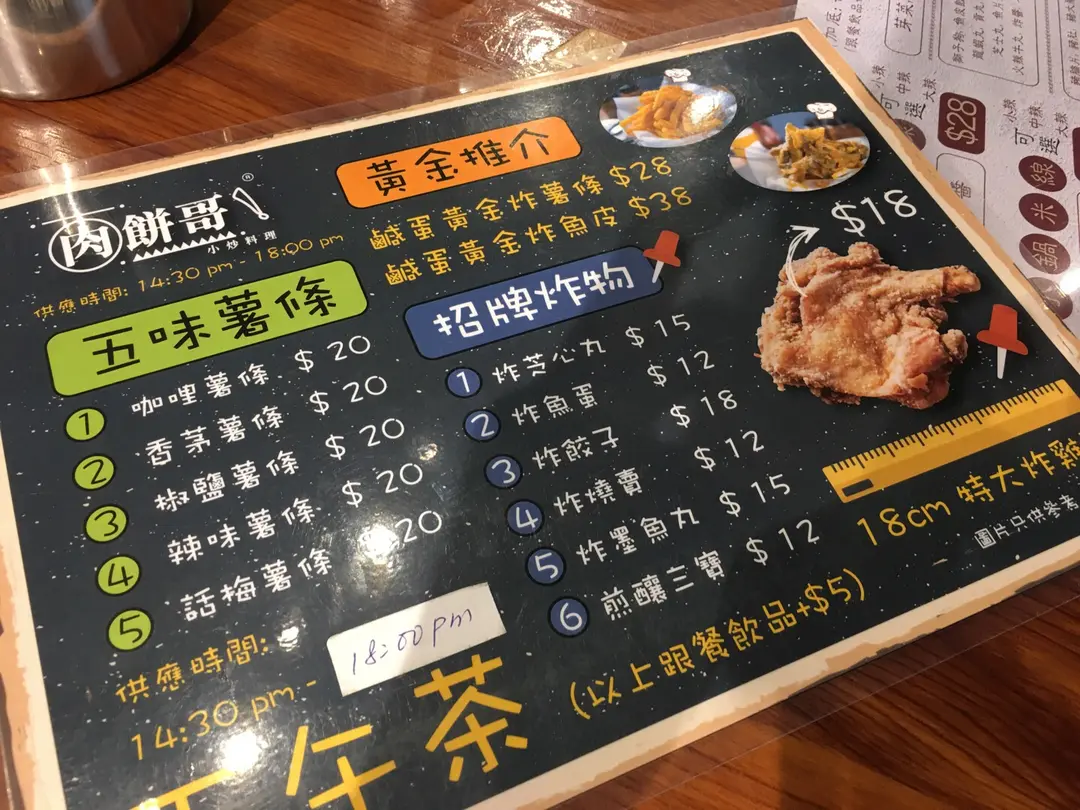 肉餅哥
®
小炒料理
供應時間: 14:30 pm - 18:00 pm
黃金推介
鹹蛋黃金炸薯條 $28
鹹蛋黃金炸魚皮 $38
五味薯條
1 咖哩薯條 $20
2 香茅薯條 $20
3 椒鹽薯條 $20
4 辣味薯條 $20
5 話梅薯條 $20
供應時間:
14:30 pm -
18:00 pm
招牌炸物
1 炸芝心丸 $15
2 炸魚蛋 $12
3 炸餃子 $18
4 炸燒賣 $12
5 炸墨魚丸 $15
6 煎釀三寶 $12
(以上跟餐飲品+$5)
$18
18cm 特大炸雞
圖片只供參考
下午茶
芽菜
小辣
可選 中辣
大辣
$28
小辣
可選 中辣
大辣
線
米
鍋
醬